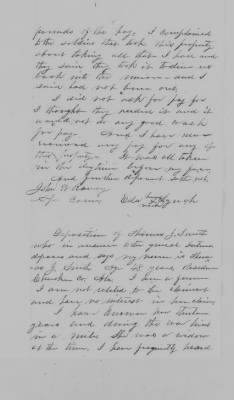 pounds of the pay, I complained
to the soldiers that took this property
about taking all that I had and
they said they took it to draw us
back into the union and I
said had not been out,
I did not ask for pay for
I thought they needed it and it
would not do any good to ask
for pay. And I have never
received any pay for any of
this property. It was all taken
in the daytime before my face
And further deponent saith not
John W Raney
Spl Comr Eda her mark Lynch
Deposition of Thomas J. Smith
who in answer to the general Interrog
deposes and says my name is Thom
as J. Smith Age 48 years Residence
Co Ala I am a farmer
I am not related to the claimant
and have no interest in her claim
I have known her
years and during the war lived
in a mile She was a widow
at the time, I have frequently heard